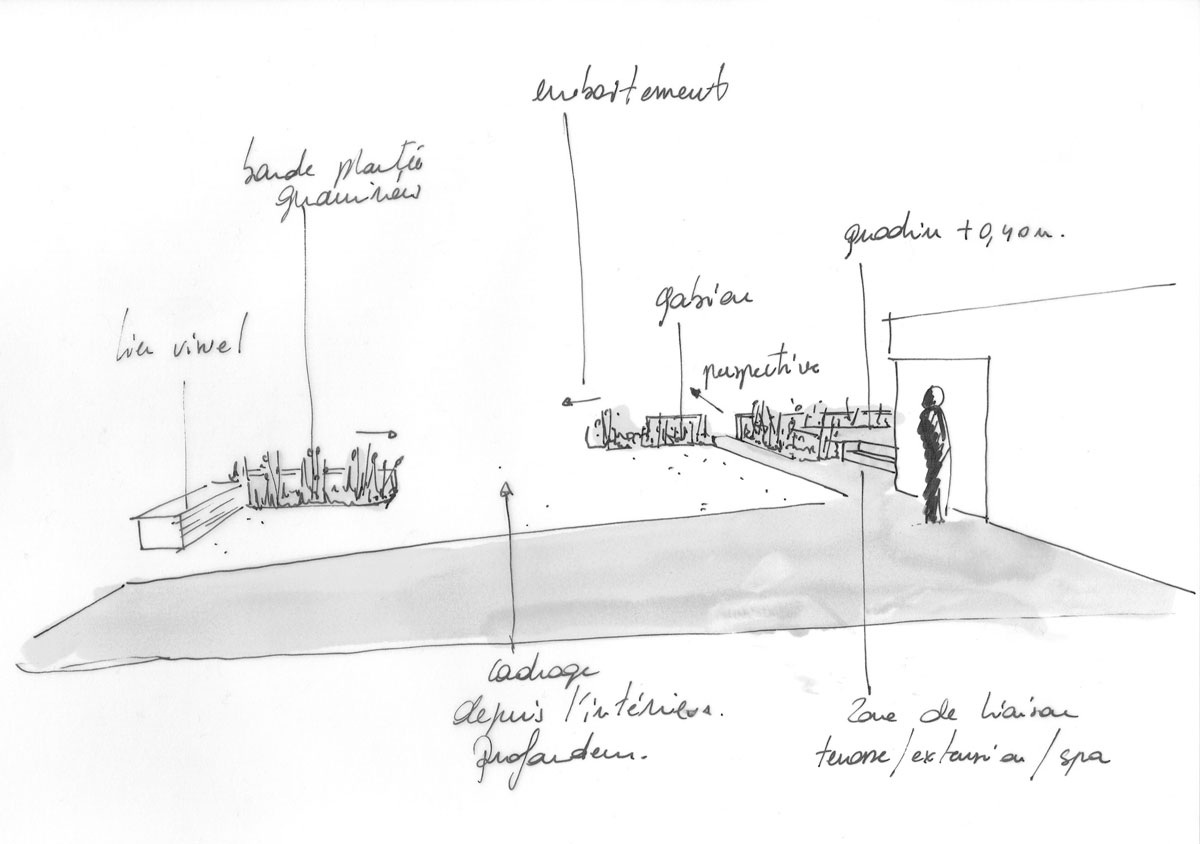 emboitement
bande plantée
graminées
gradin +0,40m.
gabion
lien visuel
perspective
cadrage
depuis l'intérieur.
profondeur.
Zone de liaison
terrasse/extension/spa